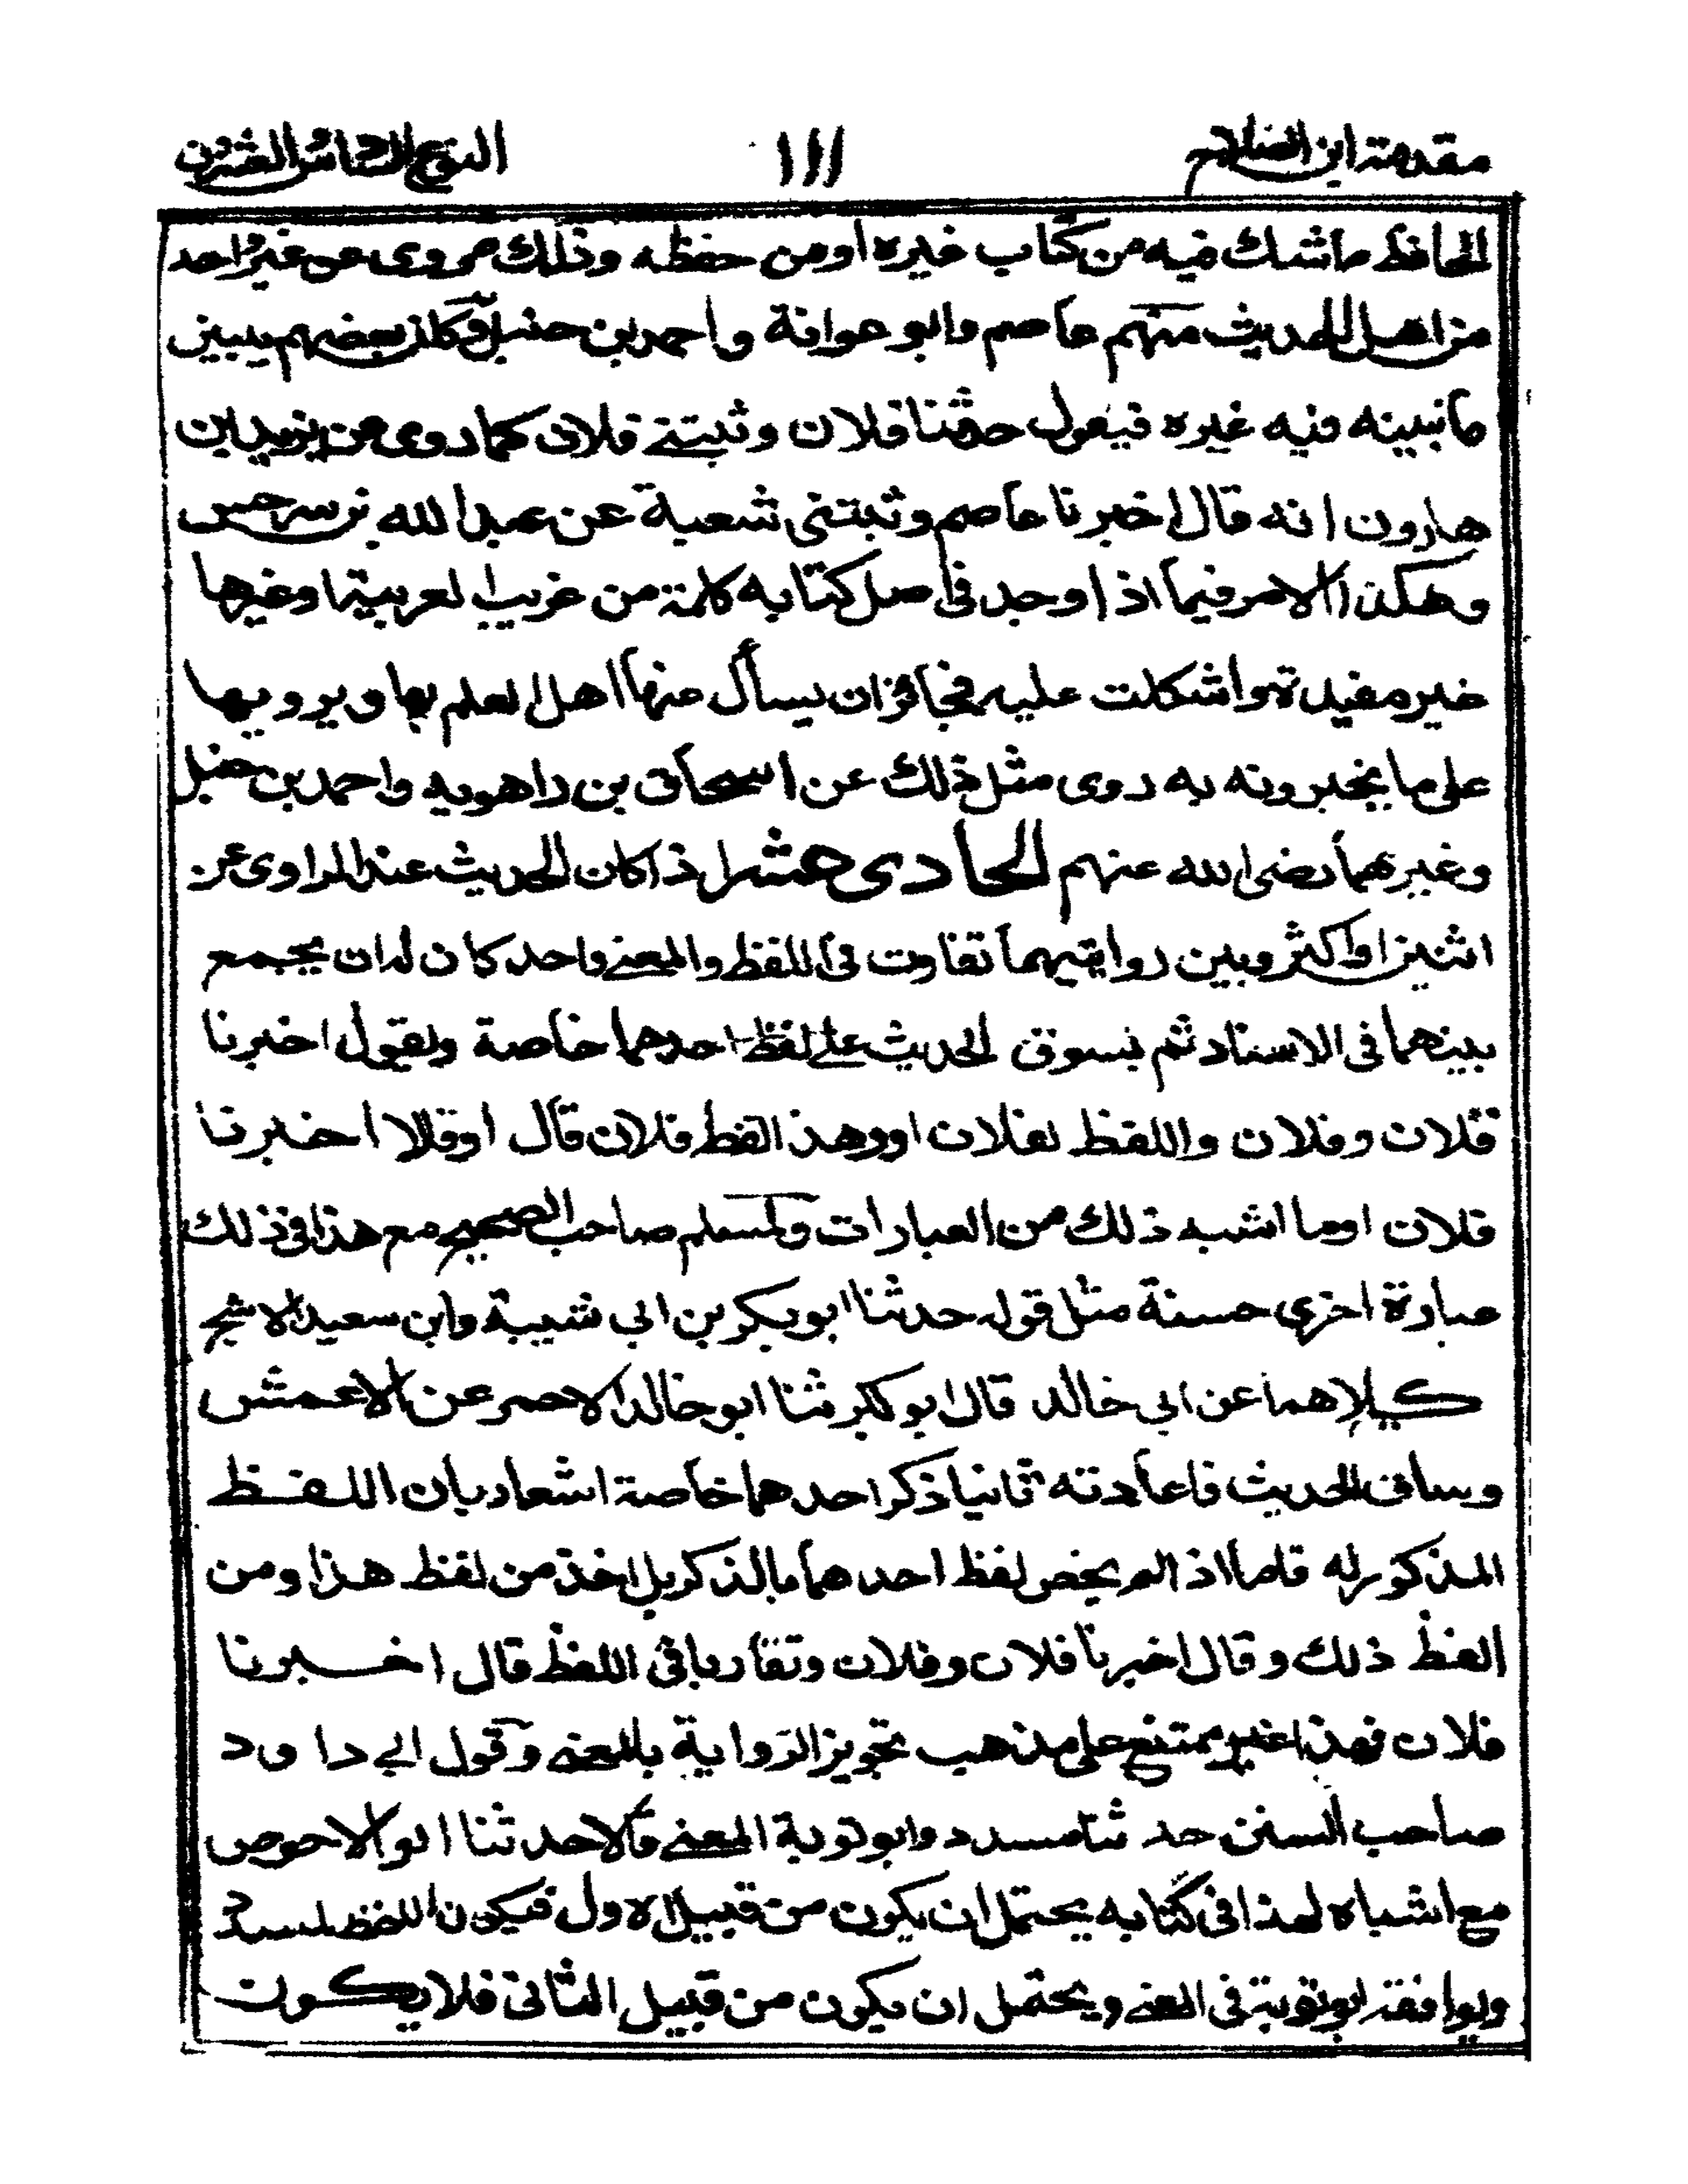 مقدمة ابن الصلاح ١١١ النوع السادس والعشرون
الحافظ ما شك فيه من كتاب غيره او من حفظه وذلك مروى عن غير واحد
من اهل الحديث منهم عاصم وابو عوانة واحمد بن حنبل وكان بعضهم يبين
ما نبينه فيه غيره فيقول حدثنا فلان وثبتنى فلان كما روى عن يزيد بن
هارون انه قال اخبرنا عاصم وثبتنى شعبة عن عبد الله بن سرجس
وهكذا الامر فيما اذا وجد فى اصل كتابه كلمة من غريب العربية او غيرها
غير مفيدة واشكلت عليه فجائز ان يسأل عنها اهل العلم بها ويرويها
على ما يخبرونه به روى مثل ذلك عن اسحاق بن راهويه واحمد بن حنبل
وغيرهما رضى الله عنهم الحادى عشر اذا كان الحديث عند الراوى عن
اثنين او اكثر وبين روايتيهما تفاوت فى اللفظ والمعنى واحد كان له ان يجمع
بينهما فى الاسناد ثم يسوق الحديث على لفظ احدهما خاصة ويقول اخبرنا
فلان وفلان واللفظ لفلان او وهذا لفظ فلان قال او قالا اخبرنا
فلان او ما اشبه ذلك من العبارات ولمسلم صاحب الصحيح مع هذا فى ذلك
عبارة اخرى حسنة مثل قوله حدثنا ابو بكر بن ابي شيبة وابن سعيد الاشج
كيلاهما عن ابي خالد قال ابو بكر ثنا ابو خالد الاحمر عن الاعمش
وساق الحديث فاعادته ثانيا ذكر احدهما خاصة اشعار بان اللفظ
المذكور له فاما اذا لم يخص لفظ احدهما بالذكر بل اخذ من لفظ هذا ومن
الفظ ذلك وقال اخبرنا فلان وفلان وتقاربا فى اللفظ قال اخبرنا
فلان فهذا غير ممتنع على مذهب تجويز الرواية بالمعنى وقول ابي داود
صاحب السنن حدثنا مسدد وابو توبة المعنى قالا حدثنا ابو الاحوص
مع اشباه لهذا فى كتابه يحتمل ان يكون من قبيل الاول فيكون اللفظ لمسدد
ويوافقه ابو توبة فى المعنى ويحتمل ان يكون من قبيل الثانى فلا يكون